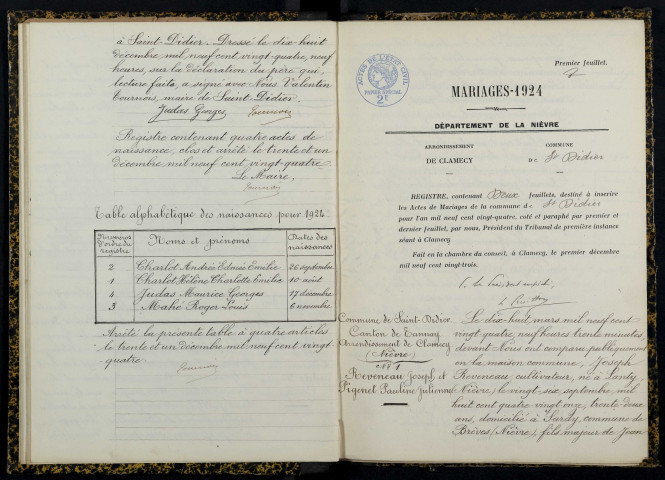 à Saint-Didier. Dressé le dix huit
décembre mil neuf cent vingt-quatre, neuf
heures, sur la déclaration du père qui,
lecture faite, a signé avec Nous Valentin
Tournois, maire de Saint-Didier.
Judas Georges Tournois
Registre contenant quatre actes de
naissance, clos et arrêté le trente et un
décembre mil neuf cent vingt-quatre
Le Maire,
Tournois
Table alphabétique des naissances pour 1924.
Numéros d'ordre du registre
Noms et prénoms
Dates des naissances
2 Charlot André Edmée Emilie 26 septembre
1 Charlot Hélène Charlotte Emilie 10 août
4 Judas Maurice Georges 17 décembre
3 Mahé Roger Louis 6 novembre
Arrêté la présente table à quatre articles
le trente et un décembre mil neuf cent vingt
quatre
Tournois
Premier feuillet.
ACTES DE L'ÉTAT CIVIL
PAPIER SPÉCIAL
2F
MARIAGES-1924
DÉPARTEMENT DE LA NIÈVRE
ARRONDISSEMENT
DE CLAMECY
COMMUNE
DE St Didier
REGISTRE, contenant Deux feuillets, destiné à inscrire
les Actes de Mariages de la commune de St Didier
pour l'an mil neuf cent vingt-quatre, coté et paraphé par premier et
dernier feuillet, par nous, Président du Tribunal de première instance
séant à Clamecy
Fait en la chambre du conseil, à Clamecy, le premier décembre
mil neuf cent vingt-trois.
Commune de Saint-Didier
Canton de Tannay
Arrondissement de Clamecy
(Nièvre)
n° 1
Reveneau Joseph et
Pigenet Pauline Julienne
Le dix-huit mars mil neuf cent
vingt quatre, neuf heures trente minutes
devant Nous ont comparu publiquement
en la maison commune, Joseph
Reveneau cultivateur, né à
(Nièvre) le vingt-six septembre mil
huit cent quatre-vingt onze, trente deux
ans, domicilié à Sardy, commune de
Brèves (Nièvre), fils majeur de Jean